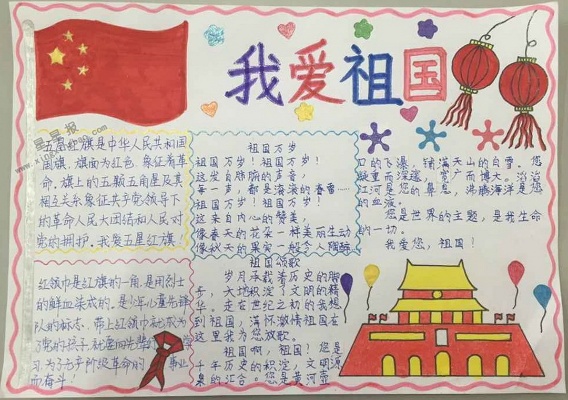 我爱祖国
五星红旗是中华人民共和国
国旗,旗面为红色,象征着革
命。旗上的五颗五角星及其
相互关系象征共产党领导下
的革命人民大团结和人民对
党的拥护。我爱五星红旗
红领巾是红旗的一角,是用烈士
的鲜血染成的,是少年先锋
队的标志。带上红领巾
为了无产阶级革命的事业
而奋斗!
祖国万岁
祖国万岁!祖国万岁!
祖国万岁!祖国万岁!
这发自肺腑的声音,
每一声,都是滚滚的春雷……
祖国万岁!祖国万岁!
这来自内心的赞美,
像春天的花朵一样美丽生动
像秋天的果实一般令人陶醉
祖国颂歌
岁月承载着历史的脚
步,大地积淀了文明的精
华。走在世纪之初的我想
到祖国,满怀激情祖国在
这里我为您放歌。
祖国啊,祖国!您是
千年历史的积淀,文明源
泉的汇合。您是黄河壶
口的飞瀑,铺满天山的白雪。您
凝重而深邃,宽广而博大。滔滔
江河是您的鼻息,沸腾海洋是您
的血液。
您是世界的主题,是我生命
的一切。
我爱您,祖国!